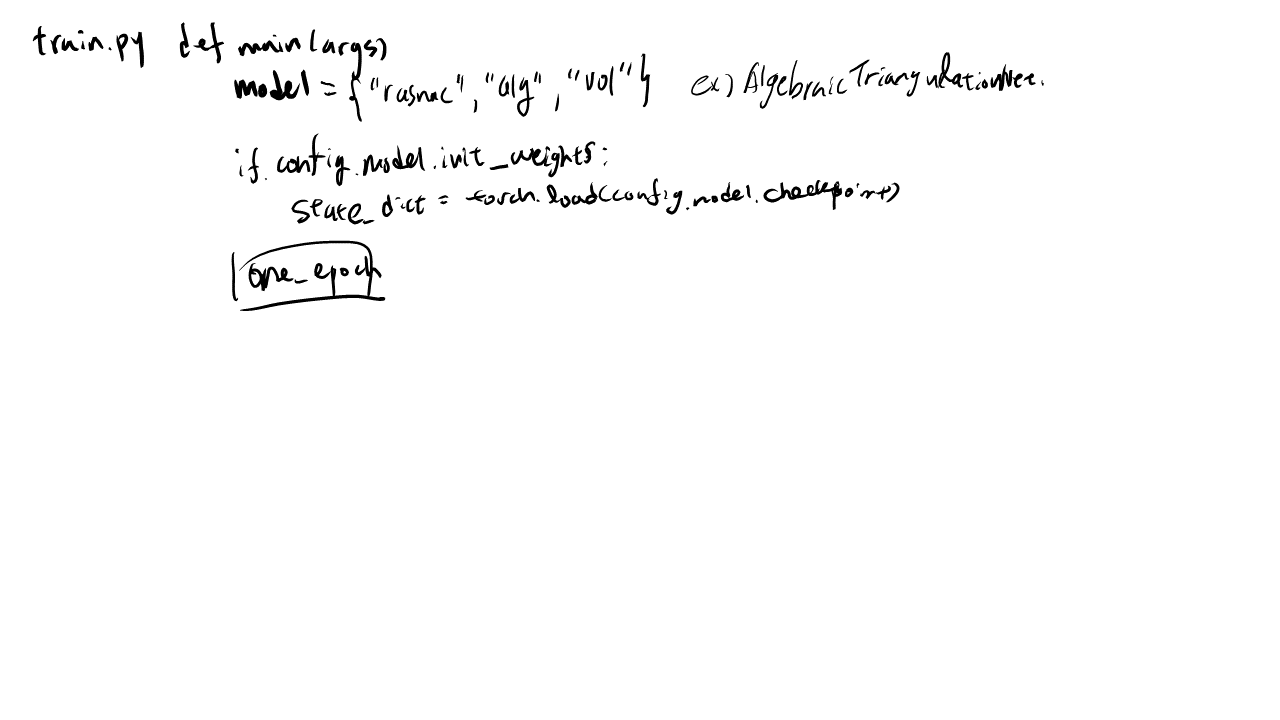 train.py def main(args)
model = { "rasnac", "alg", "vol" } ex) AlgebraicTriangulationNet.
if config.model.init_weights:
state_dict = torch.load(config.model.checkpoint)
one_epoch